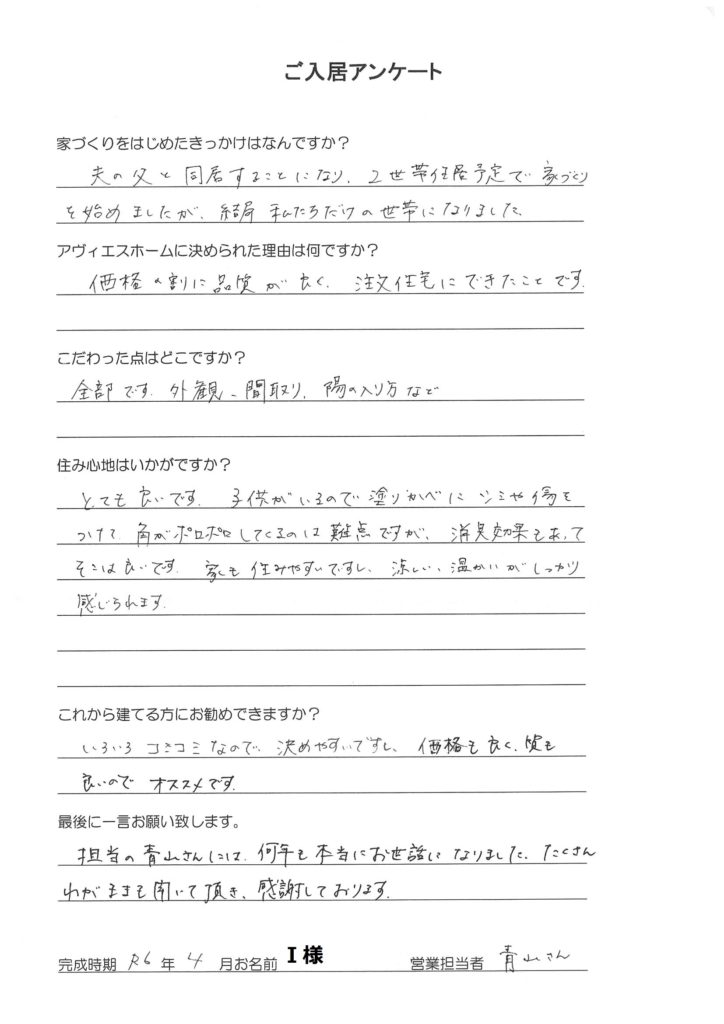 ご入居アンケート
家づくりをはじめたきっかけはなんですか？
夫の父と同居することになり、2世帯住居予定で家づくり
を始めましたが、結局私たちだけの世帯になりました。
アヴィエスホームに決められた理由は何ですか？
価格の割に品質が良く、注文住宅にできたことです。
こだわった点はどこですか？
全部です。外観、間取り、陽の入り方など
住み心地はいかがですか？
とても良いです。子供がいるので塗りかべにシミや傷を
つけて、角がポロポロしてくるのは難点ですが、消臭効果もあって
そこは良いです。家も住みやすいですし、涼しい、温かいがしっかり
感じられます。
これから建てる方にお勧めできますか？
いろいろコミコミなので、決めやすいですし、価格も良く、質も
良いのでオススメです。
最後に一言お願い致します。
担当の青山さんには、何年も本当にお世話になりました。たくさん
わがままも聞いて頂き、感謝しております。
完成時期 R6 年 4 月お名前 I 様 営業担当者 青山さん